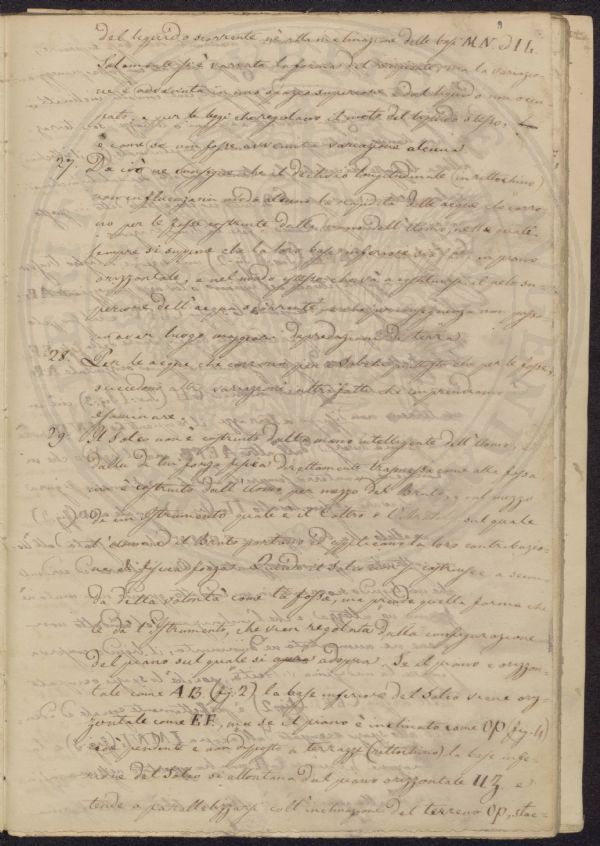 del liquido scorrente nè alla inclinazione delle basi M.N. ed I L.
Solamente si è variata la forma del recipiente, ma la variazio-
ne è avvenuta in uno spazio superiore dal liquido non occu-
pato, e per le leggi che regolano il moto del liquido stesso,
è come se non fosse avvenuta variazione alcuna
27. Da ciò ne consegue che il declivio longitudinale (in rittochino)
non influenza in modo alcuno la rapidità delle acque che corro-
no per le fosse costruite dalla mano dell'Uomo, nelle quali
sempre si suppone che la loro base inferiore sia in piano
orizzontale, e nel modo stesso che và a costituirsi il pelo su-
periore dell'acqua scorrente, e che per conseguenza non possa
aver luogo maggiore depredazione di terra
28. Per le acque, che corrono per i Solchi piuttosto che per le fosse,
succedono altre variazioni, altri fatti che imprendiamo
esaminare.
29. Il Solco non è costruito dalla mano intelligente dell'Uomo, e
dalla di lui forza fisica direttamente trasmessa come alla fossa
ma è costruito dall'Uomo per mezzo del Bruto, e col mezzo
di un Istrumento quale è il Coltro o l' sul quale
l'Uomo e il Bruto portano ed applicano la loro contribuzio-
ne di fisica forza. Quindi il Solco non è costruito a secon-
da della volontà come la fossa, ma prende quella forma che
le dà l'Istrumento, che vien regolata dalla configurazione
del piano sul quale si adopra. Se il piano è orizzon-
tale come A B (fig. 2) la base inferiore del Solco viene oriz-
zontale come E F, ma se il piano è inclinato come O P (fig. 4)
cioè pendente e non disposto a terrazzi (rittochino) la base infe-
riore del Solco si allontana dal piano orizzontale U Z e
tende a parallelizzarsi coll'inclinazione del terreno O P, stac-